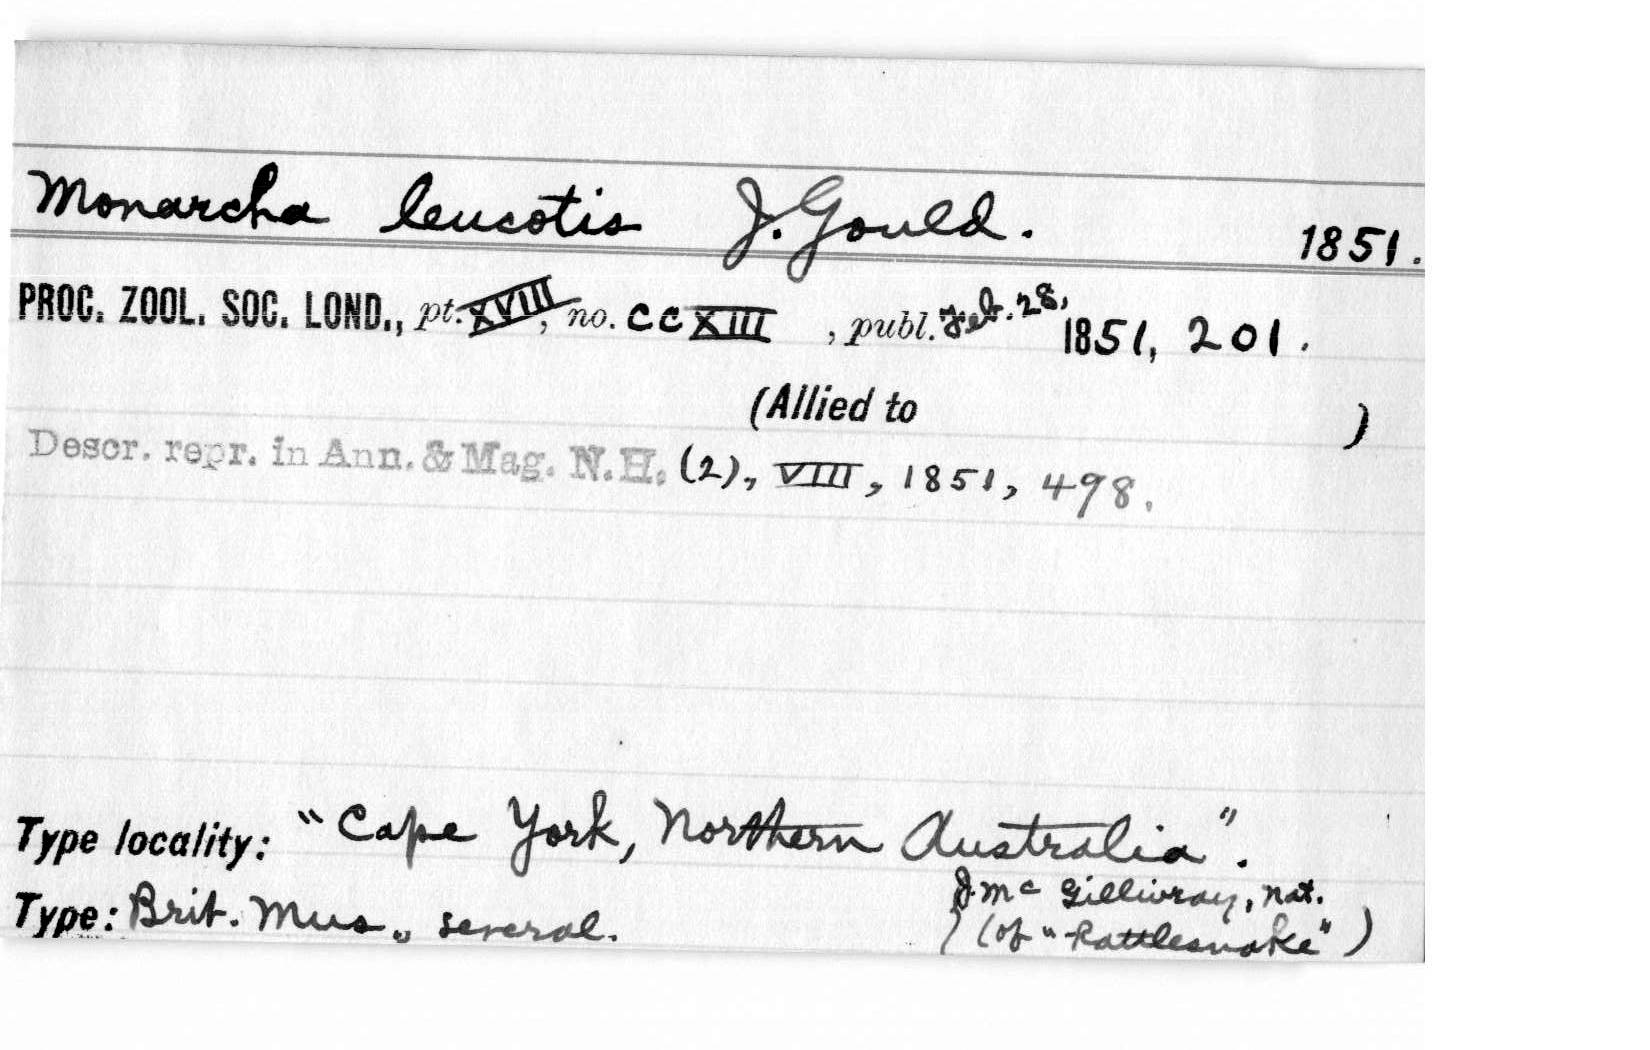 Monarcha leucotis J. Gould. 1851.
PROC. ZOOL. SOC. LOND., pt. XVIII, no. CCXIII, publ. Feb. 28, 1851, 201.
(Allied to )
Descr. repr. in Ann. & Mag. N.H. (2)., VIII, 1851, 498.
Type locality: "Cape York, Northern Australia".
J. Mc Gillivray, nat.
Type: Brit. Mus., several. (of "Rattlesnake")